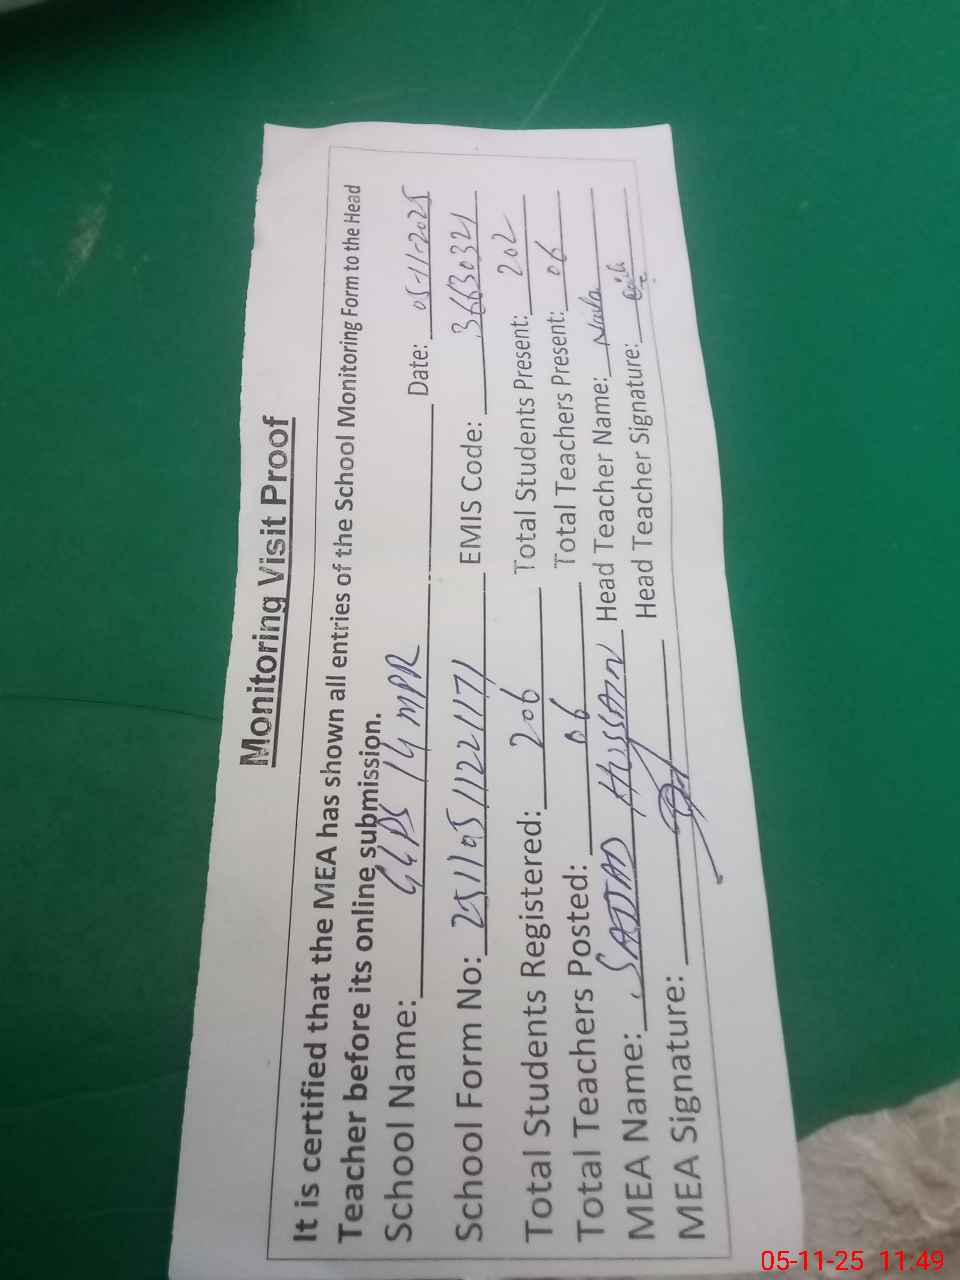 Monitoring Visit Proof
It is certified that the MEA has shown all entries of the School Monitoring Form to the Head
Teacher before its online submission.
School Name: GGPS 14 MPR Date: 05-11-2025
School Form No: 251105112211171 EMIS Code: 36630321
Total Students Registered: 206 Total Students Present: 202
Total Teachers Posted: 06 Total Teachers Present: 06
MEA Name: SAJJAD HUSSAIN Head Teacher Name: Naila
MEA Signature: Head Teacher Signature:
05-11-25 11:49